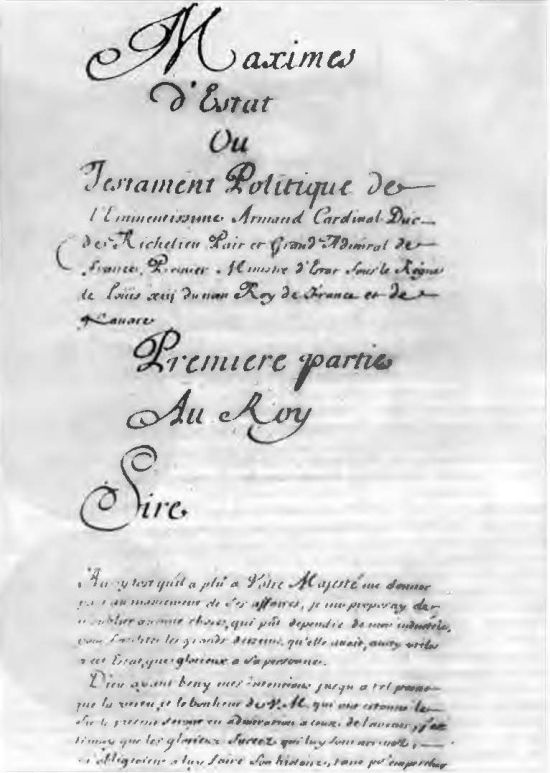 Maximes
d'Estat
Ou
Testament Politique de
l'Eminentissime Armand Cardinal Duc
de Richelieu Pair et Grand Admiral de
france, Premier Ministre d'Estat sous le Regne
de Loüis xiij du nom Roy de France et de
Navarre
Premiere partie
Au Roy
Sire
Aussytost qu'il a plû a Vôtre Majesté me donner
part au maniement de ses affaires, je me proposay de
n'oublier aucune chose, qui pût dependre de mon industrie,
pour faciliter les grands desseins, qu'elle avoit, aussy utiles
a cet Estat, que glorieux a sa personne.
Dieu ayant beny mes intentions jusqu'a tel
que la vertu, et le bonheur de V. M. qui ont estonné le
siecle present seront en admiration a ceux de l'avenir, j'es
timay que les glorieux succez qui luy sont arrivez,
m'obligeoient a luy faire son histoire, tant pr empescher